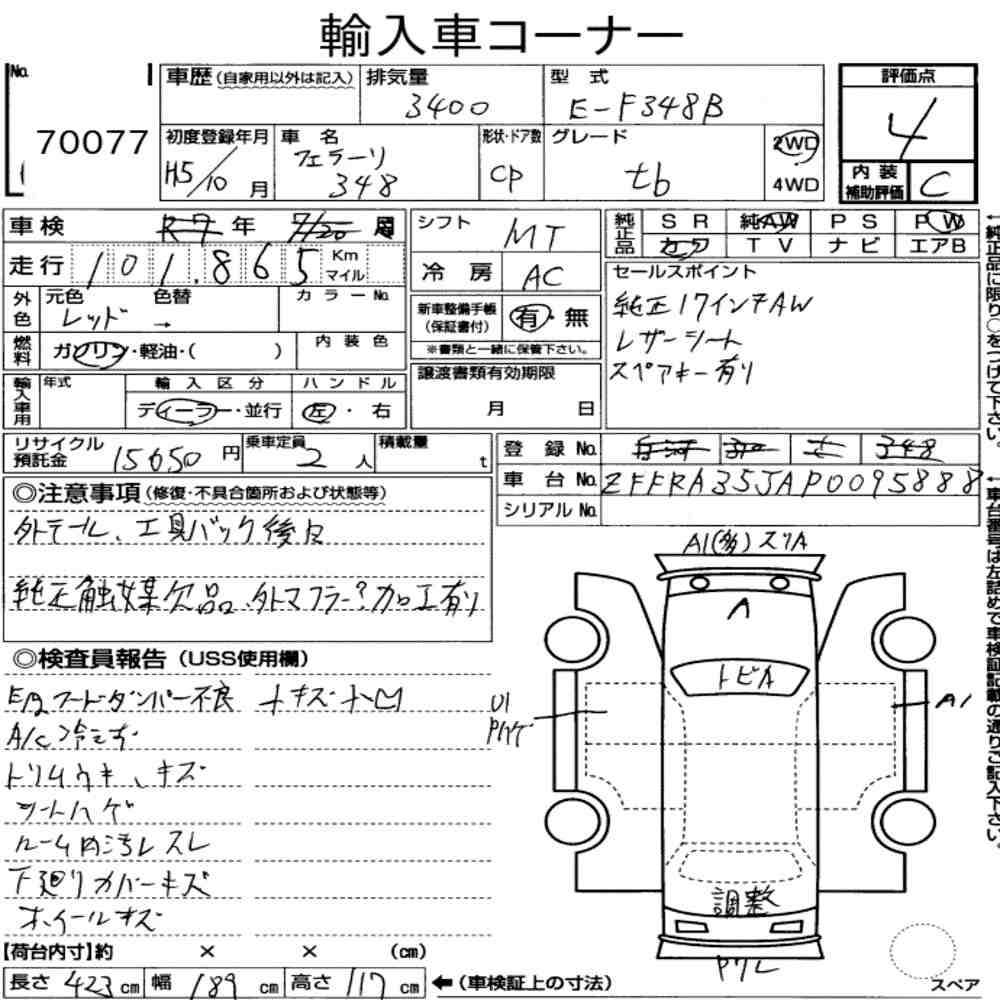 輸入車コーナー
No. 70077
車歴 (自家用以外は記入) 排気量 3400 型式 E-F348B
評価点 4
初度登録年月 H5/10月 車名 フェラーリ 348 形状・ドア数 CP グレード tb 2WD 4WD
内装補助評価 C
車検 R7年 7/20
走行 101.865 Km マイル
外色 元色 レッド 色替 → カラーNo.
燃料 ガソリン・軽油・( ) 内装色
輸入車用 年式 輸入区分 ディーラー・並行 ハンドル 左・右
シフト MT
冷房 AC
新車整備手帳 (保証書付) 有・無
※書類と一緒に保管下さい。
譲渡書類有効期限
月 日
純正品 SR 純AW PS PW
カセ TV ナビ エアB
セールスポイント
純正17インチAW
レザーシート
スペアキー有り
←純正品に限り○をつけて下さい。
リサイクル預託金 15650円 乗車定員 2人 積載量 t
登録No. 348
車台No. ZFFRA35JAP0095888
シリアルNo.
←車台番号は左詰めで車検証記載の通りご記入下さい。
◎注意事項 (修復・不具合箇所および状態等)
外テール、工具バック後日
純正触媒欠品、外マフラー?加工有り
◎検査員報告 (USS使用欄)
E/g フードダンパー不良 小キズ小凹
A/C冷えず
トリムウキ、キズ
シートハゲ
ルーム内汚レスレ
下廻りカバーキズ
ホイールキズ
A1(多)スリA
A
トビA
U1
Pハゲ
A1
調整
Pワレ
スペア
【荷台内寸】約 × × (cm)
長さ 423 cm 幅 189 cm 高さ 117 cm ←(車検証上の寸法)